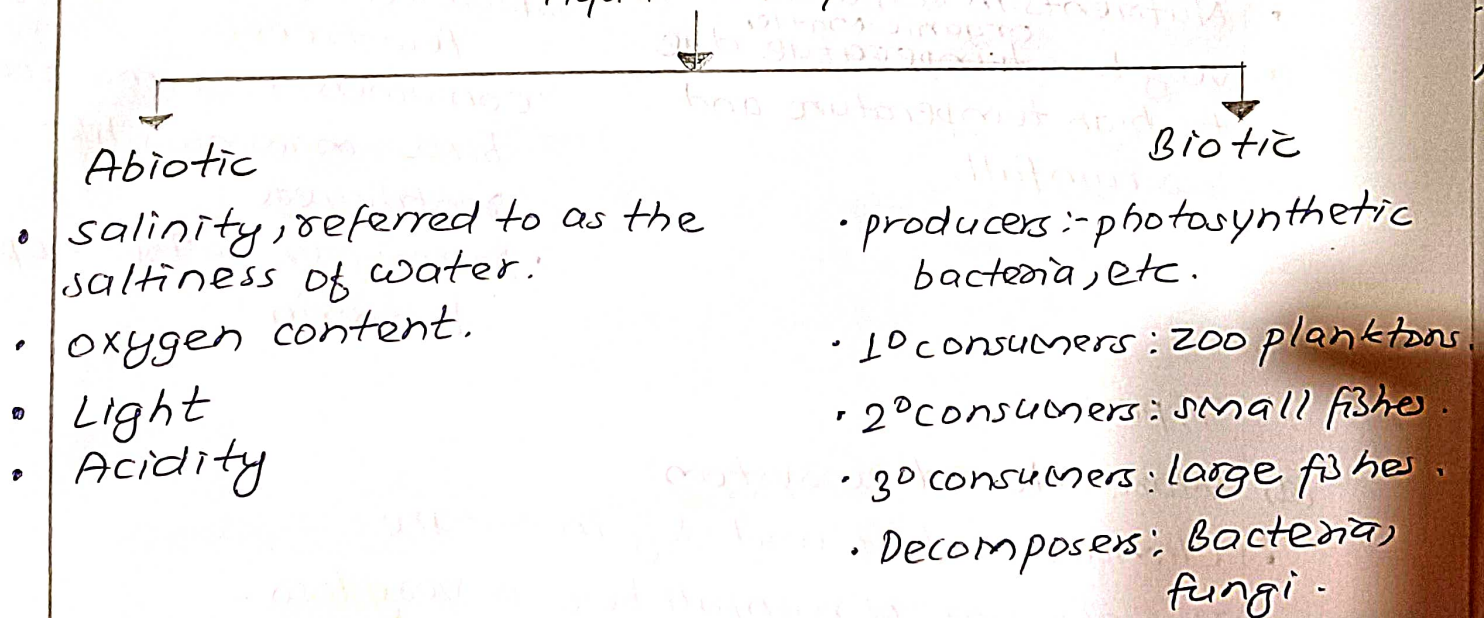 Abiotic
• salinity, referred to as the
saltiness of water.
• oxygen content.
• Light
• Acidity
Biotic
• producers :- photosynthetic
bacteria, etc.
• 1° consumers : zoo planktons.
• 2° consumers : small fishes.
• 3° consumers : large fishes.
• Decomposers : Bacteria,
fungi.